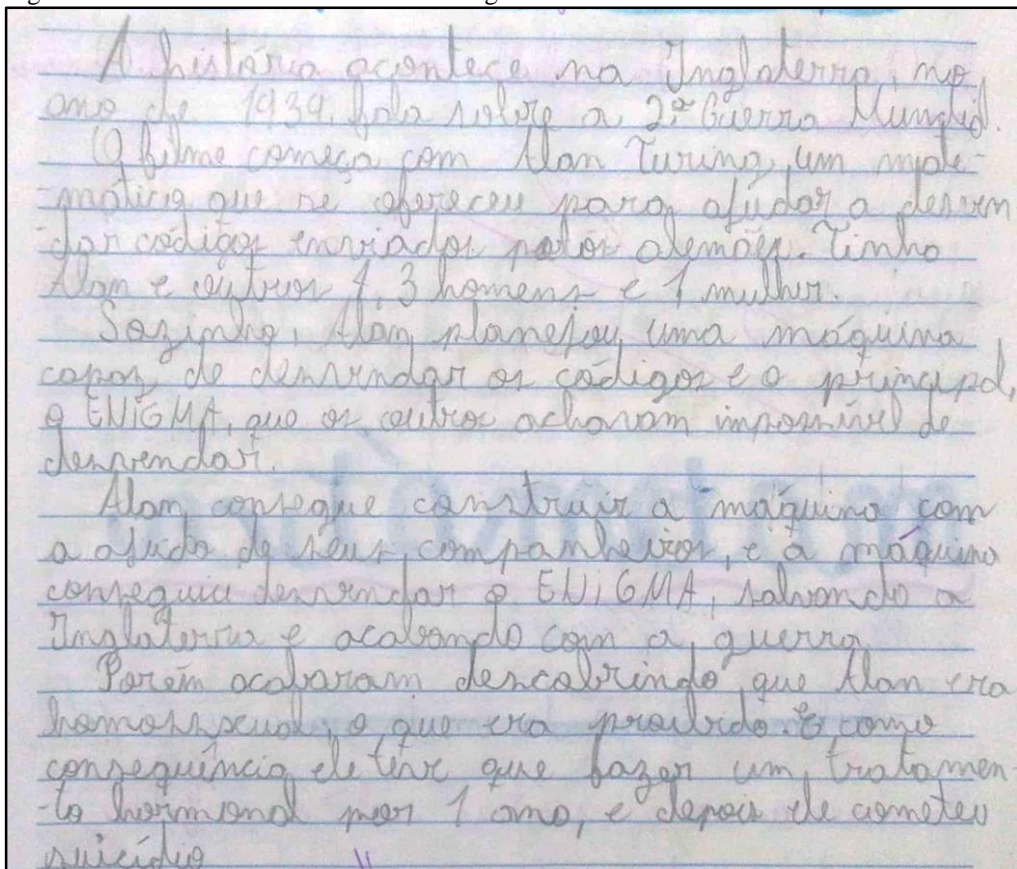 A história acontece na Inglaterra, no
ano de 1939. fala sobre a 2ª Guerra Mundial.
O filme começa com Alan Turing, um mate-
-mático que se ofereceu para ajudar a desven
-dar códigos enviados pelos alemães. Tinha
Alan e outros 4, 3 homens e 1 mulher.
Sozinho, Alan planejou uma máquina
capaz de desvendar os códigos e o principal,
o ENiGMA, que os outros achavam impossível de
desvendar.
Alan consegue construir a máquina com
a ajuda de seus companheiros, e a máquina
conseguiu desvendar o ENiGMA, salvando a
Inglaterra e acabando com a guerra.
Porém acabaram descobrindo que Alan era
homossexual, o que era proibido. E como
consequência ele teve que fazer um tratamen-
-to hormonal por 1 ano, e depois ele cometeu
suicídio